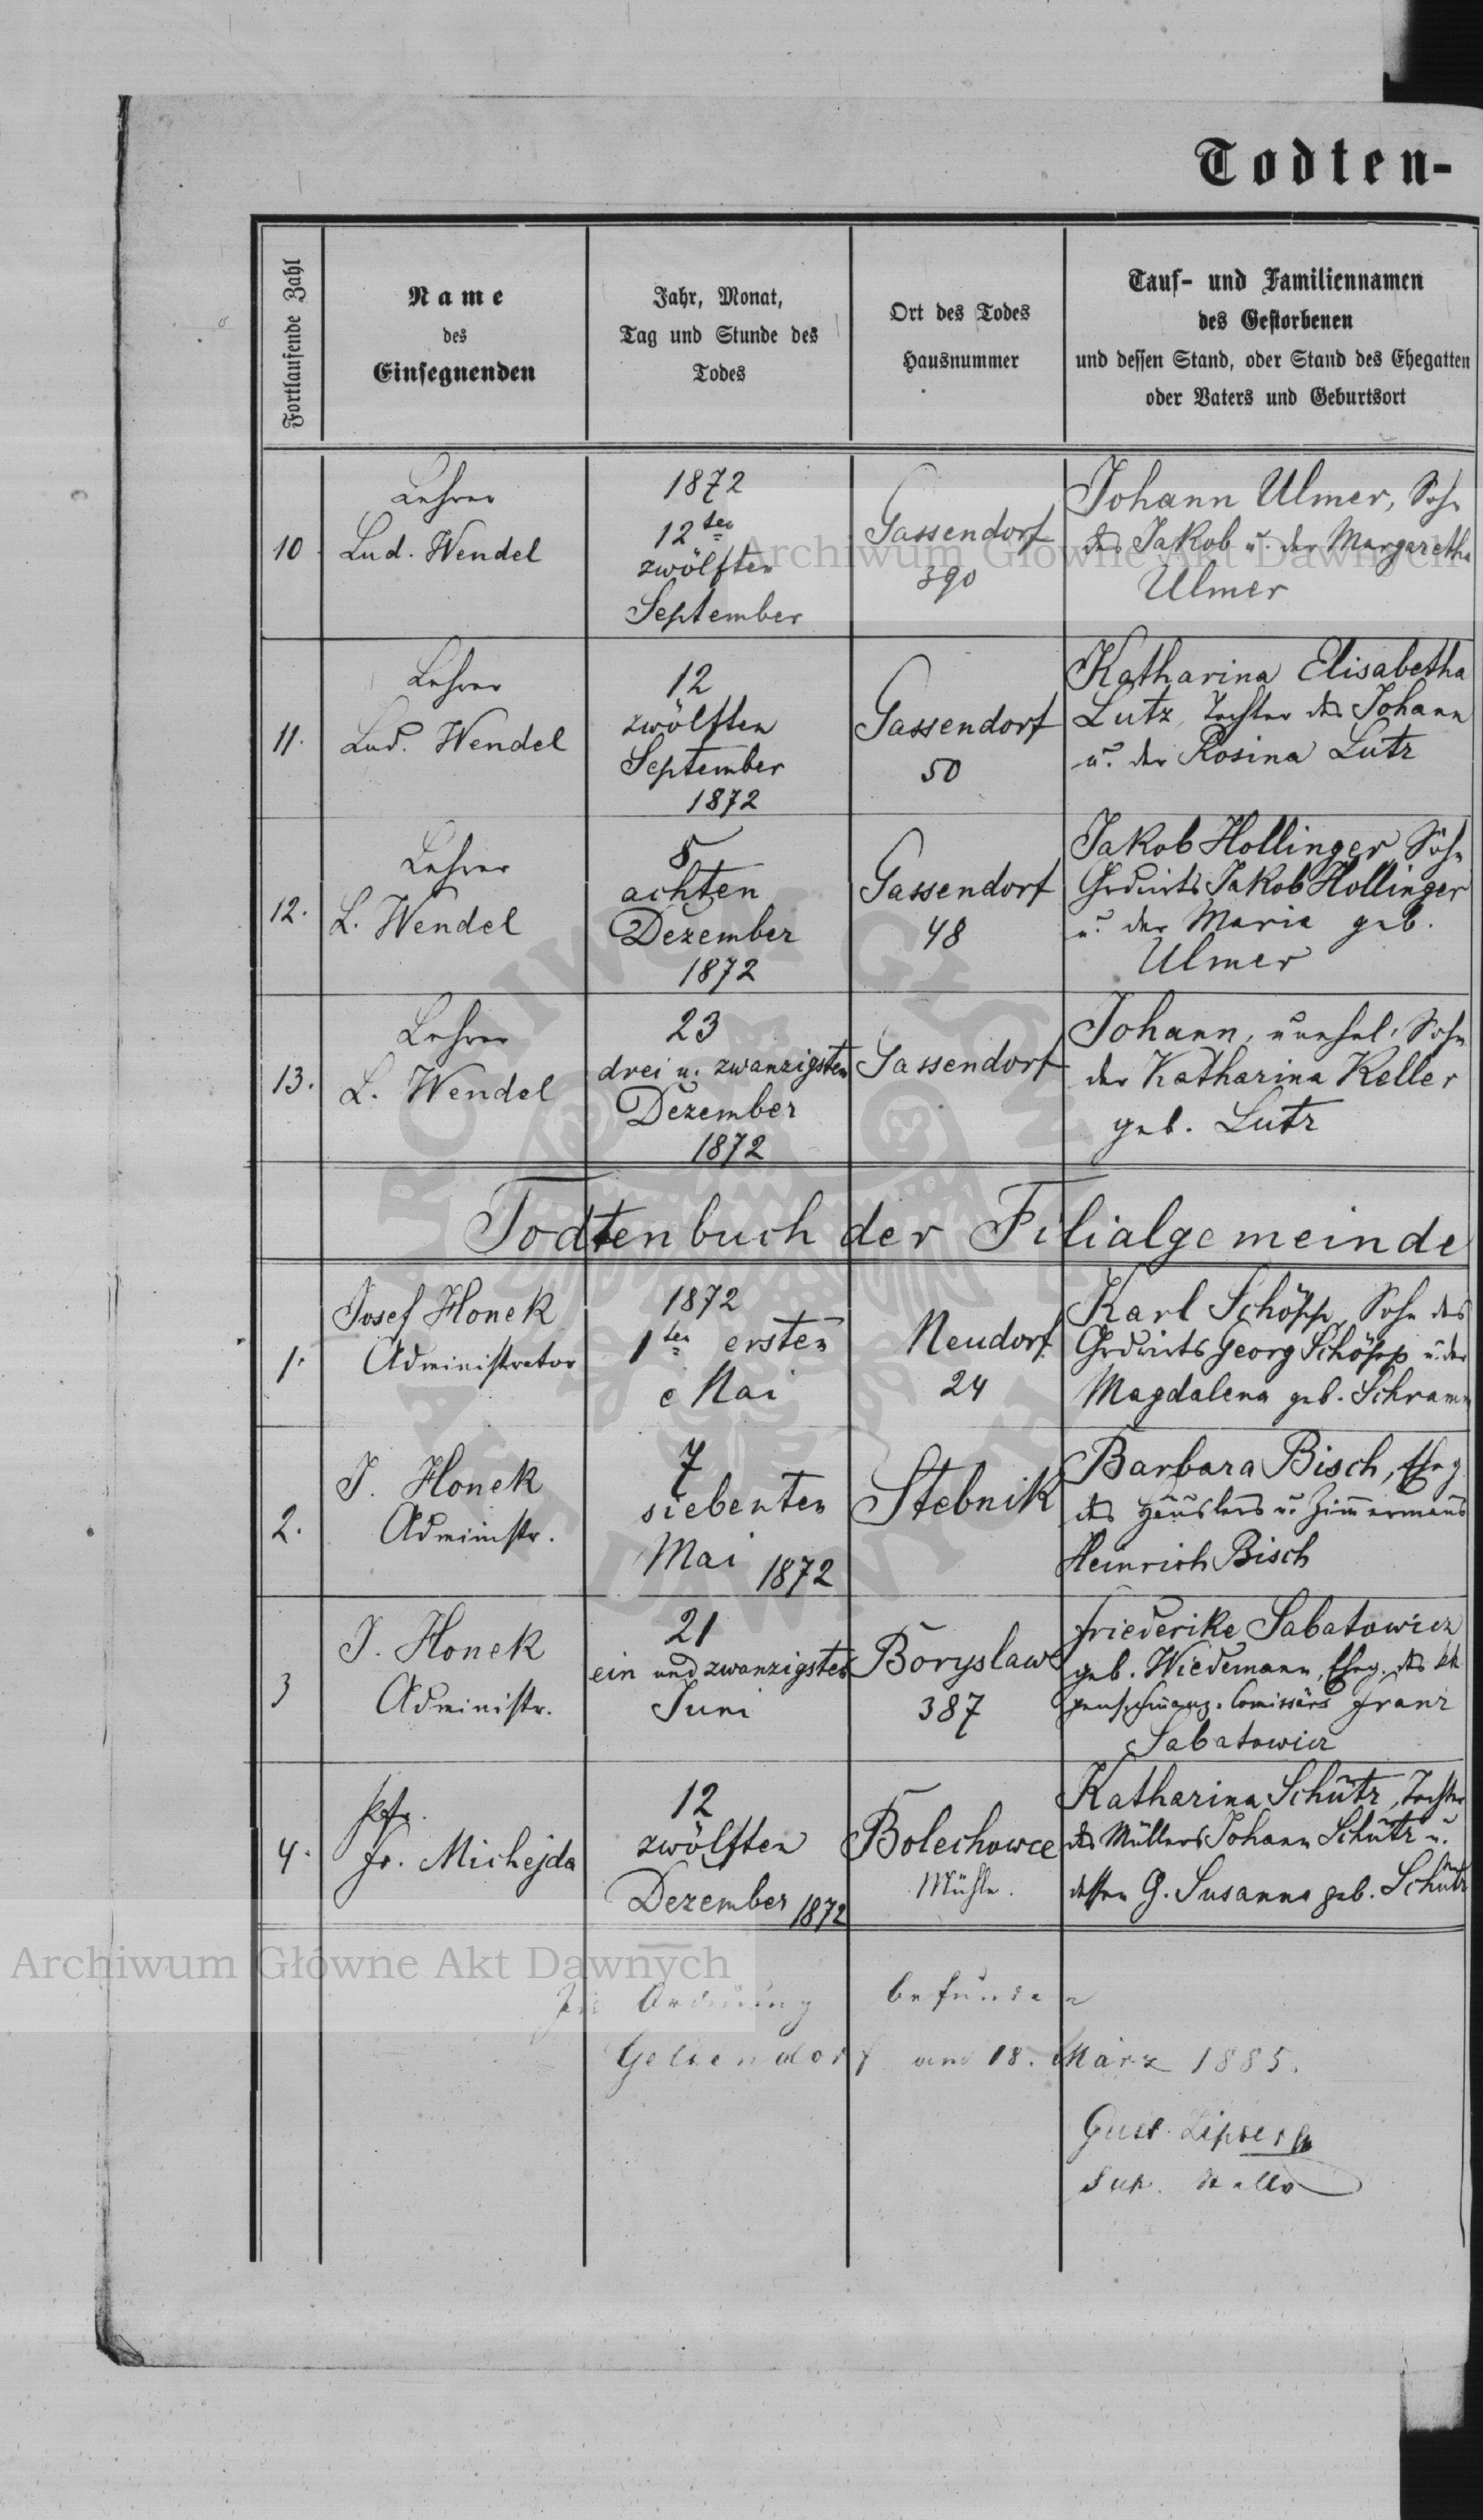 Todten-
Fortlaufende Zahl
Name
des
Einsegnenden
Jahr, Monat,
Tag und Stunde des
Todes
Ort des Todes
Hausnummer
Tauf- und Familiennamen
des Gestorbenen
und dessen Stand, oder Stand des Ehegatten
oder Vaters und Geburtsort
10
Lehrer
Lud. Wendel
1872
12ten
zwölften
September
Gassendorf
390
Johann Ulmer, Sohn
des Jakob u. der Margaretha
Ulmer
11.
Lehrer
Lud. Wendel
12
zwölften
September
1872
Gassendorf
50
Katharina Elisabetha
Lutz, Tochter des Johann
u. der Rosina Lutz
12.
Lehrer
L. Wendel
8
achten
Dezember
1872
Gassendorf
48
Jakob Hollinger, Sohn
Grdwirts Jakob Hollinger
u. der Maria geb.
Ulmer
13.
Lehrer
L. Wendel
23
drei u. zwanzigsten
Dezember
1872
Gassendorf
Johann, unehel. Sohn
der Katharina Keller
geb. Lutz
Todtenbuch der Filialgemeinde
1.
Josef Honek
Administrator
1872
1ten ersten
Mai
Neudorf
24
Karl Schöpp, Sohn des
Grdwirts Georg Schöpp u. der
Magdalena geb. Schramm
2.
J. Honek
Administr.
7
siebenten
Mai 1872
Stebnik
Barbara Bisch, Eheg
des Häuslers u. Zimmermanns
Heinrich Bisch
3
J. Honek
Administr.
21
ein und zwanzigsten
Juni
Boryslaw
387
Friederike Sabatowicz
geb. Wiedemann, Eheg. des kk
pens. Finanz. Comissärs Franz
Sabatowicz
4.
Pfr.
Fr. Michejda
12
zwölften
Dezember 1872
Bolechowce
Mühle.
Katharina Schütz, Tochter
des Müllers Johann Schütz u.
dessen G. Susanna geb.
In Ordnung befunden
Gelsendorf am 18. März 1885.
Gust. Lipser
Sup.
Archiwum Główne Akt Dawnych
Archiwum Główne Akt Dawnych
ARCHIWUM GŁÓWNE AKT DAWNYCH